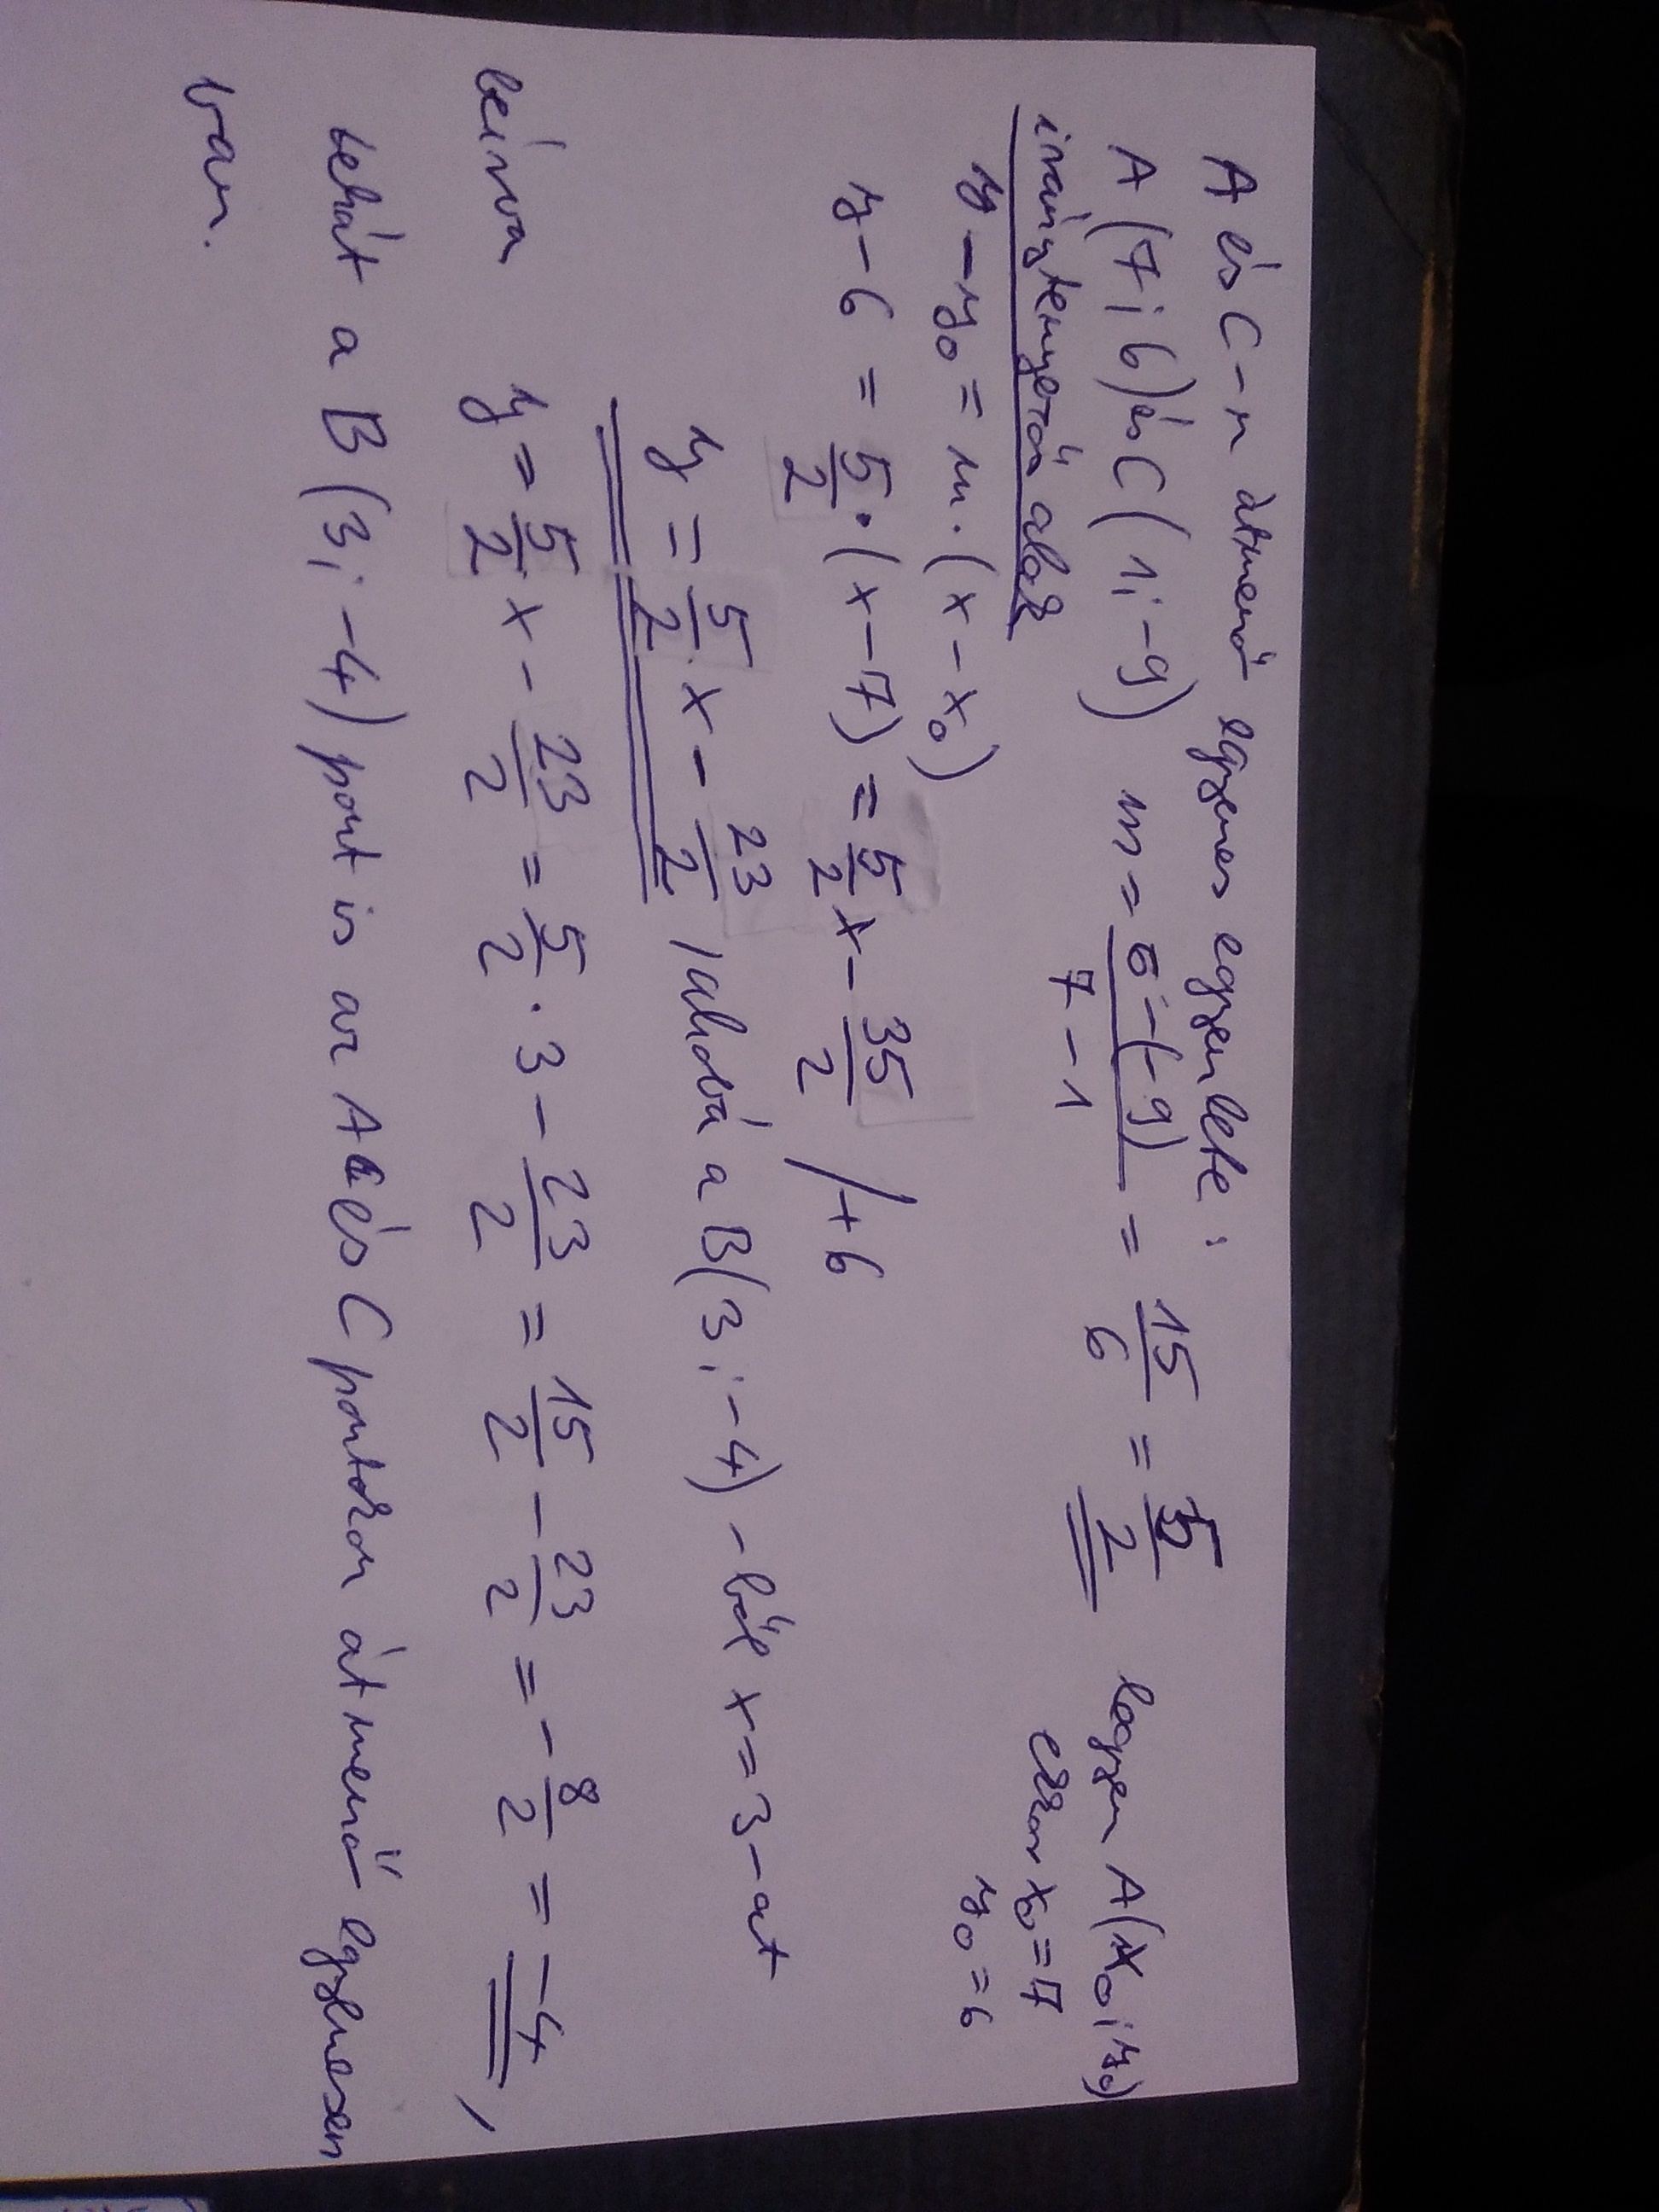 A és C-n átmenő egyenes egyenlete:
A(7;6) és C(1;-9) m = \frac{6-(-9)}{7-1} = \frac{15}{6} = \frac{5}{2} legyen A(x₀;y₀)
iránytényezős alak ekkor x₀=7
y-y₀ = m·(x-x₀) y₀=6
y-6 = \frac{5}{2}·(x-7) = \frac{5}{2}x - \frac{35}{2} /+6
y = \frac{5}{2}x - \frac{23}{2} , ahová a B(3;-4)-ből x=3-at
beírva y = \frac{5}{2}x - \frac{23}{2} = \frac{5}{2}·3 - \frac{23}{2} = \frac{15}{2} - \frac{23}{2} = -\frac{8}{2} = -4,
tehát a B(3;-4) pont is az A és C pontokon átmenő egyenesen
van.